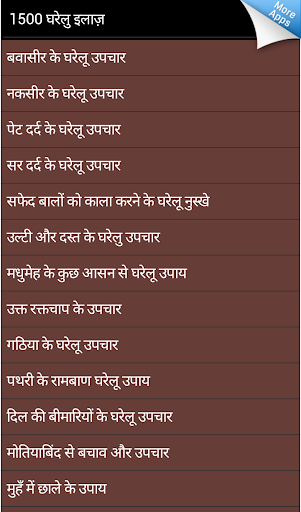 1500 घरेलु इलाज़
More
Apps
बवासीर के घरेलू उपचार
नकसीर के घरेलू उपचार
पेट दर्द के घरेलू उपचार
सर दर्द के घरेलू उपचार
सफेद बालों को काला करने के घरेलू नुस्खे
उल्टी और दस्त के घरेलु उपचार
मधुमेह के कुछ आसन से घरेलू उपाय
उक्त रक्तचाप के उपचार
गठिया के घरेलू उपचार
पथरी के रामबाण घरेलू उपाय
दिल की बीमारियों के घरेलू उपचार
मोतियाबिंद से बचाव और उपचार
मुहँ में छाले के उपाय